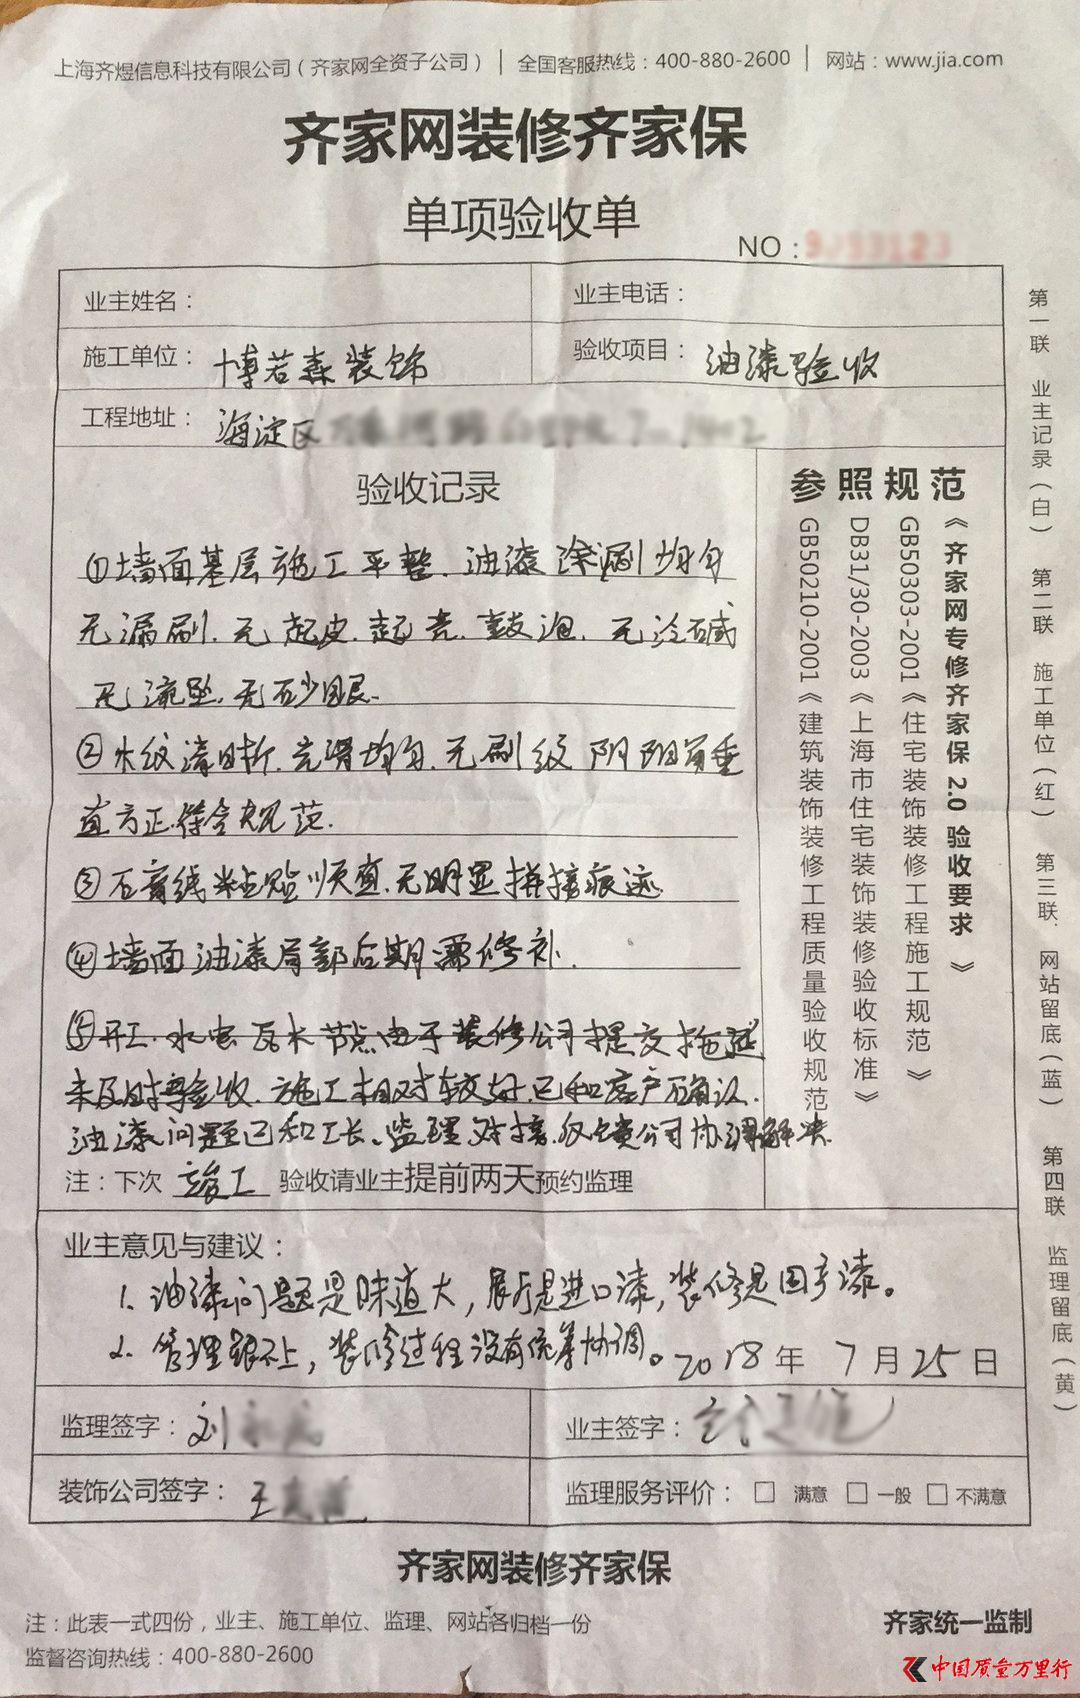 上海齐煜信息科技有限公司（齐家网全资子公司） | 全国客服热线：400-880-2600 | 网站：www.jia.com
齐家网装修齐家保
单项验收单
NO：
业主姓名：
业主电话：
施工单位：博若森装饰
验收项目：油漆验收
工程地址：海淀区
验收记录
①墙面基层施工平整.油漆涂刷均匀
无漏刷.无起皮.起壳.鼓泡.无泛碱
无流坠.无砂眼.
②木纹清晰.光滑均匀.无刷纹 阴阳角垂
直方正.符合规范.
③石膏线粘贴顺直.无明显拼接痕迹
④墙面油漆局部后期需修补.
⑤开工.水电瓦木节点由于装修公司提交拖延
未及时验收.施工相对较好.已和客户确认.
油漆问题已和工长、监理对接.仅负责公司协调解决
注：下次 竣工 验收请业主提前两天预约监理
参照规范
《齐家网专修齐家保2.0验收要求》
GB50303-2001《住宅装饰装修工程施工规范》
DB31/30-2003《上海市住宅装饰装修验收标准》
GB50210-2001《建筑装饰装修工程质量验收规范
第一联 业主记录（白） 第二联 施工单位（红） 第三联.网站留底（蓝） 第四联 监理留底（黄）
业主意见与建议：
1. 油漆问题是味道大，展厅是进口漆，装修是国产漆。
2. 管理跟不上，装修过程没有统筹协调。
2018年 7月25日
监理签字：刘
业主签字：
装饰公司签字：王
监理服务评价：□ 满意 □ 一般 □ 不满意
齐家网装修齐家保
注：此表一式四份，业主、施工单位、监理、网站各归档一份
齐家统一监制
监督咨询热线：400-880-2600
中国质量万里行